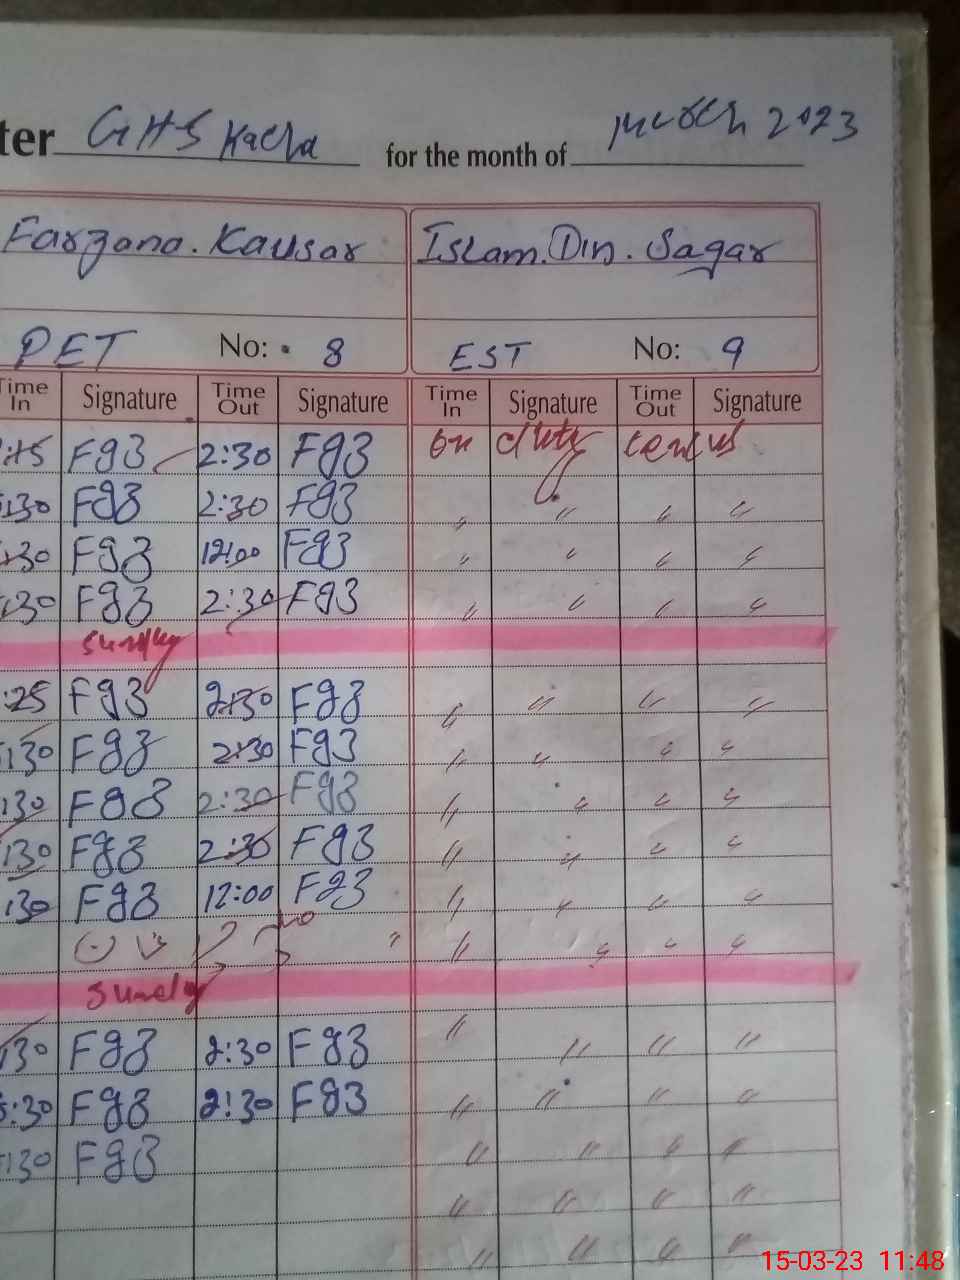 ter GHS Kacha for the month of March 2023
Farzana. Kausar Islam. Din. Sagar
PET No: 8 EST No: 9
Time In Signature Time Out Signature Time In Signature Time Out Signature
Fg3 2:30 Fg3 on duty census
:30 Fg3 2:30 Fg3 " " " "
:30 Fg3 12:00 Fg3 " " " "
:30 Fg3 2:30 Fg3 " " " "
Sunday
:25 Fg3 2:30 Fg3 " " " "
:30 Fg3 2:30 Fg3 " " " "
:30 Fg3 2:30 Fg3 " " " "
:30 Fg3 2:30 Fg3 " " " "
:30 Fg3 12:00 Fg3 " " " "
" " " " "
Sunday
:30 Fg3 2:30 Fg3 " " " "
:30 Fg3 2:30 Fg3 " " " "
:30 Fg3 " " " "
" " " "
" " " "
15-03-23 11:48